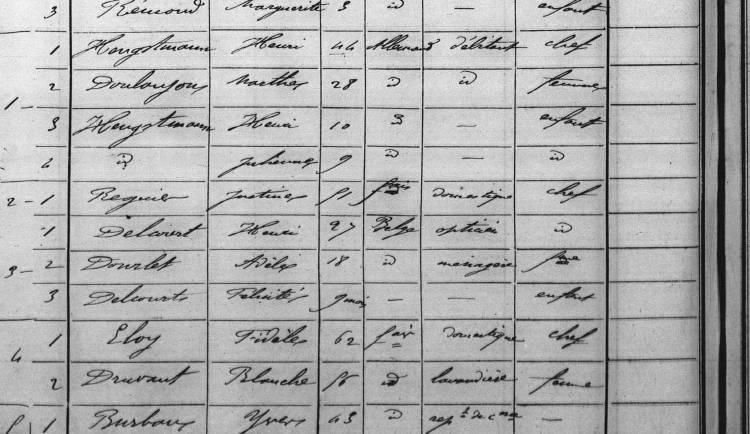 3 Rémond Marguerite 3 id — enfant
1 Hengstmann Henri 44 Allemand débitant chef
2 Doulonjons Marthe 28 id id femme
3 Hengstmann Henri 10 id — enfant
4 id Julienne 9 id — id
2 - 1 Regnier Justine 51 frais domestique chef
1 Delcourt Henri 27 Belge opticien id
3 - 2 Dourlet Adèle 18 id ménagère fme
3 Delcourt Félicité 9 mois — — enfant
4 1 Eloy Fidèle 62 fais domestique chef
2 Druvant Blanche 56 id lavandière femme
5 1 Burbaux Yves 43 id rept de cmce —